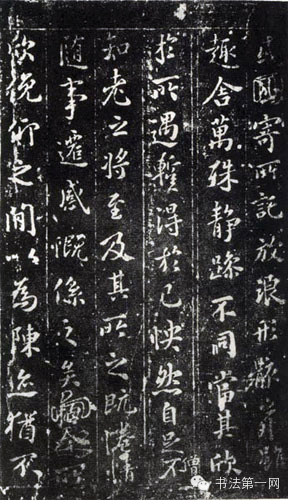 或因寄所託放浪形骸之外雖
趣舍萬殊靜躁不同當其欣
於所遇蹔得於己怏然自足不
知老之將至及其所之既惓情
隨事遷感慨係之矣向之所
欣俛仰之間以為陳迹猶不
僧
书法第一网